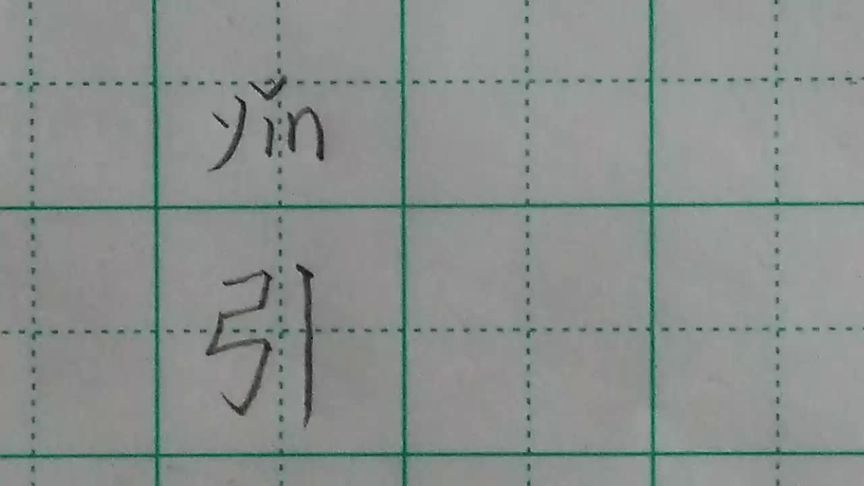 yǐn
引